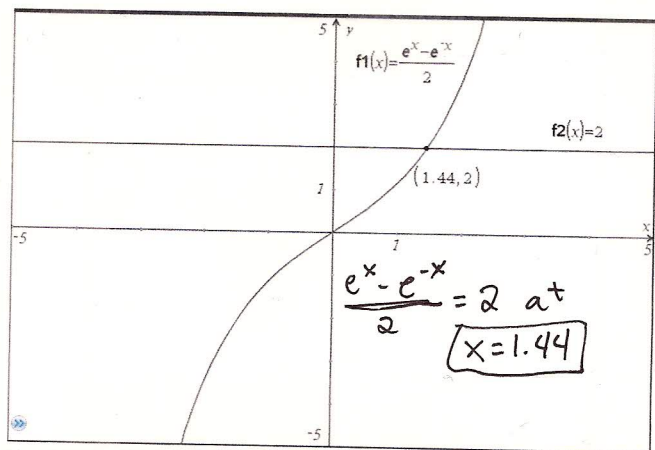 5 y
f1(x)=(e^x−e^-x)/2
f2(x)=2
(1.44, 2)
1
-5
x
1
5
e^x - e^-x / 2 = 2 at
x=1.44
-5